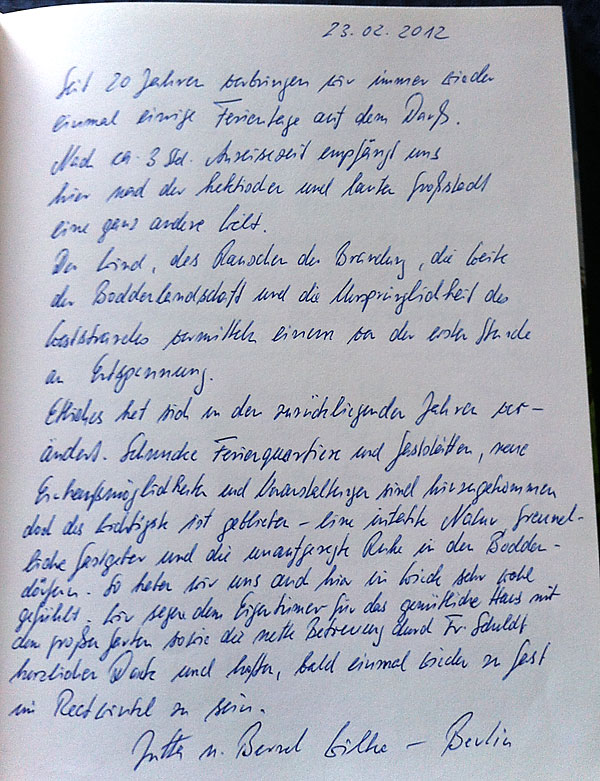 23.02.2012
Seit 20 Jahren verbringen wir immer wieder
einmal einige Ferientage auf dem Darß.
Nach ca. 3 Std. Anreisezeit empfängt uns
hier nach der hektischen und lauten Großstadt
eine ganz andere Welt.
Der Wind, das Rauschen der Brandung, die Weite
der Boddenlandschaft und die Ursprünglichkeit des
Weststrandes vermitteln einem von der ersten Stunde
an Entspannung.
Etliches hat sich in den zurückliegenden Jahren ver-
ändert. Schmucke Ferienquartiere und Gaststätten, neue
Einkaufsmöglichkeiten und Veranstaltungen sind hinzugekommen
doch das Wichtigste ist geblieben – eine intakte Natur, freund-
liche Gastgeber und die unaufgeregte Ruhe in den Bodden-
dörfern. So haben wir uns auch hier in Wieck sehr wohl
gefühlt, wir sagen dem Eigentümer für das gemütliche Haus mit
dem großen Garten sowie die nette Betreuung durch Fr. Schuldt
herzlichen Dank und hoffen, bald einmal wieder zu Gast
im Reetwinkel zu sein.
Jutta u. Bernd Wilke – Berlin